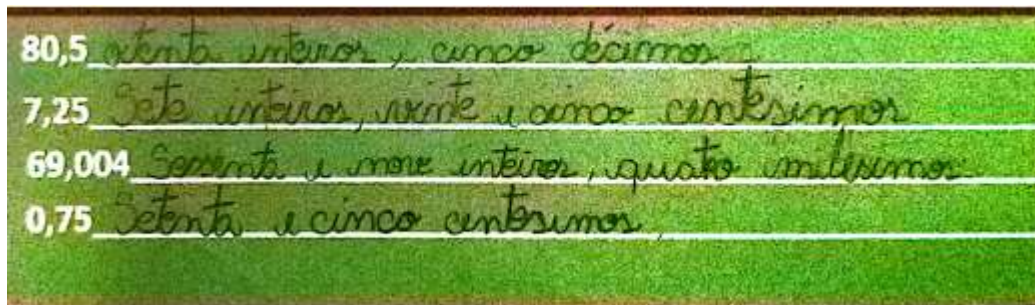 80,5 oitenta inteiros, cinco décimos
7,25 Sete inteiros, vinte e cinco centésimos
69,004 Sessenta e nove inteiros, quatro milésimos
0,75 Setenta e cinco centésimos